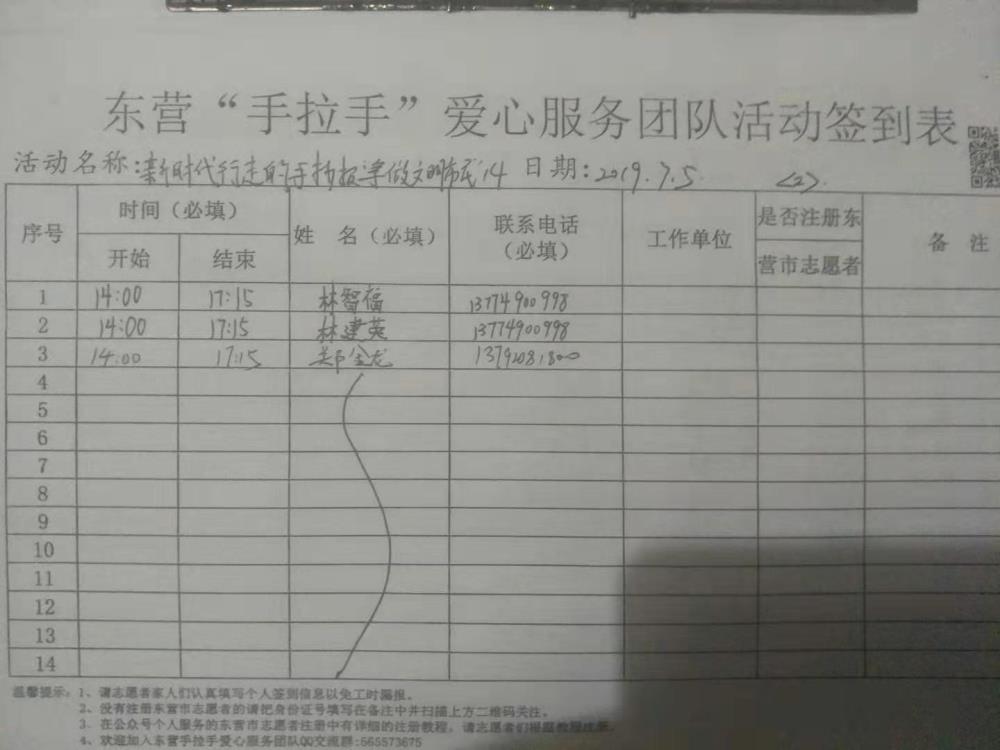 东营“手拉手”爱心服务团队活动签到表
活动名称:新时代行走的手抄报争做文明市民14 日期:2019.7.5 <2>
序号 时间（必填） 姓 名（必填） 联系电话（必填） 工作单位 是否注册东营市志愿者 备 注
开始 结束
1 14:00 17:15 林智福 13774900998
2 14:00 17:15 林建英 13774900998
3 14:00 17:15 郑金龙
4
5
6
7
8
9
10
11
12
13
14
温馨提示: 1、请志愿者家人们认真填写个人签到信息以免工时漏报。
2、没有注册东营市志愿者的请把身份证号填写在备注中并扫描上方二维码关注。
3、在公众号个人服务的东营市志愿者注册中有详细的注册教程，请志愿者们根据教程注册
4、欢迎加入东营手拉手爱心服务团队QQ交流群:565573675